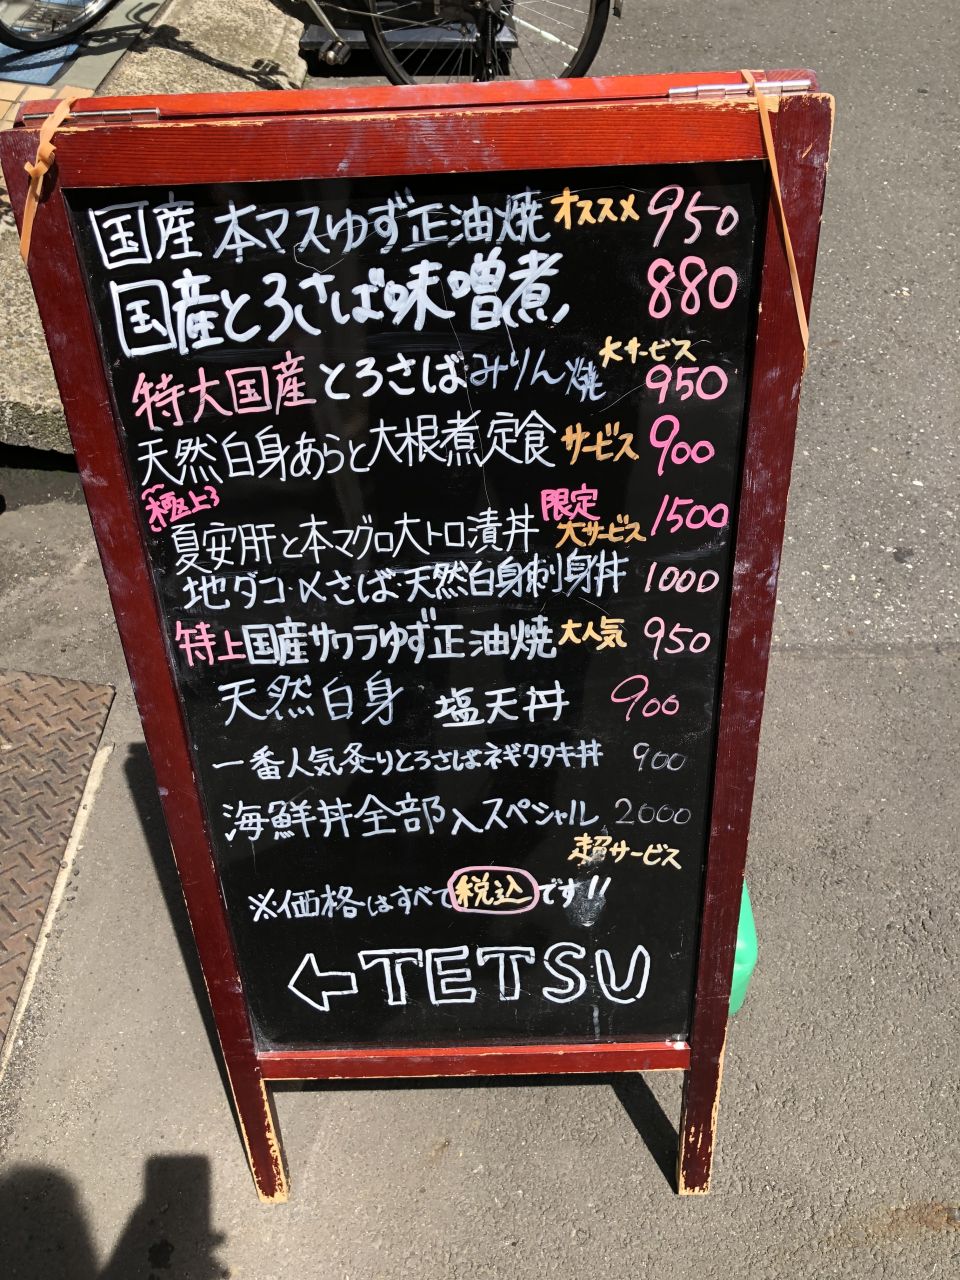 国産 本マスゆず正油焼 オススメ 950
国産とろさば味噌煮 880
特大国産とろさばみりん焼 大サービス 950
天然白身あらと大根煮定食 サービス 900
極上
夏安肝と本マグロ大トロ漬丼 限定 大サービス 1500
地ダコ・〆さば・天然白身刺身丼 1000
特上国産サワラゆず正油焼 大人気 950
天然白身 塩天丼 900
一番人気炙りとろさばネギタタキ丼 900
海鮮丼全部入スペシャル 2000
超サービス
※価格はすべて税込です!!
←TETSU